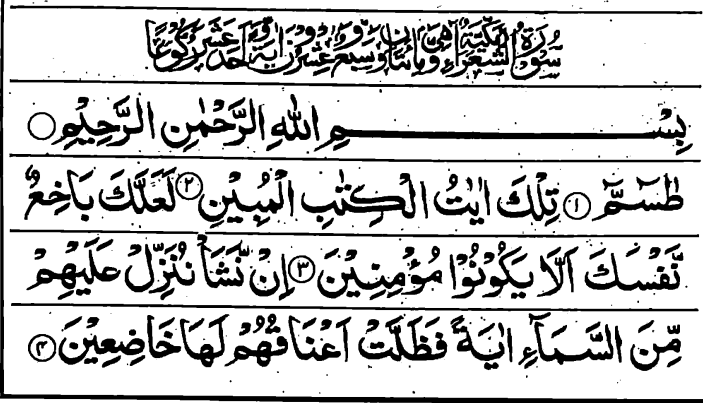 سُوْرَةُ الشُّعَرَاءِ مَكِّيَّةٌ وَّهِىَ مِائَتَانِ وَسَبْعٌ وَّعِشْرُوْنَ اٰيَةً وَّاَحَدَ عَشَرَ رُكُوْعًا
بِسْمِ اللهِ الرَّحْمٰنِ الرَّحِيْمِ ○
طٰسٓمّٓ ۝۱ تِلْكَ اٰيٰتُ الْكِتٰبِ الْمُبِيْنِ ۝۲ لَعَلَّكَ بَاخِعٌ
نَّفْسَكَ اَلَّا يَكُوْنُوْا مُؤْمِنِيْنَ ۝۳ اِنْ نَّشَاْ نُنَزِّلْ عَلَيْهِمْ
مِّنَ السَّمَآءِ اٰيَةً فَظَلَّتْ اَعْنَاقُهُمْ لَهَا خَاضِعِيْنَ ۝۴